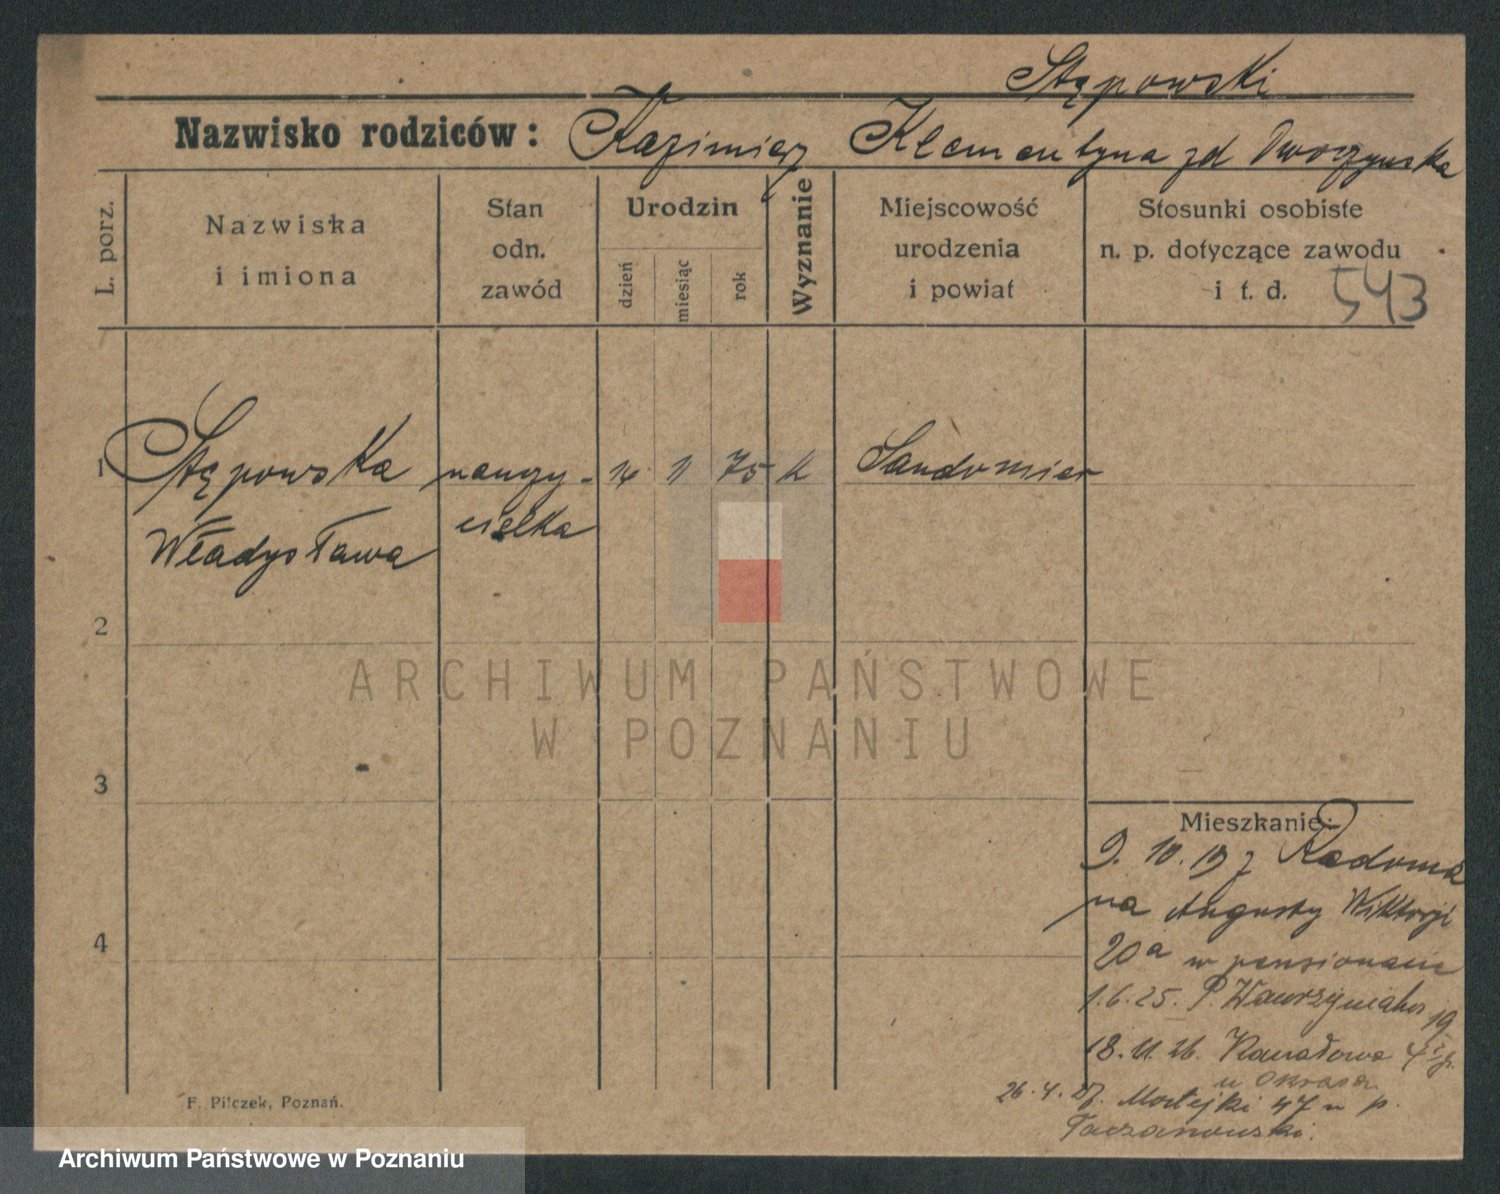 Stępowski
Nazwisko rodziców: Kazimierz Klementyna zd Dworzyńska
L. porz.
Nazwiska
i imiona
Stan
odn.
zawód
Urodzin
dzień
miesiąc
rok
Wyznanie
Miejscowość
urodzenia
i powiat
Stosunki osobiste
n. p. dotyczące zawodu
i t. d.
543
1 Stępowska nauczy- 14 11 75 k Sandomierz
Władysława cielka
2
3
4
Mieszkanie:
9. 10. 19 z Radomia
na Augusty Wiktorji
20a w pensionacie
1.6.25. P. Wawrzyniaka 19
18.11.26. Kanałowa 4
u
26.4.27. Matejki 47 u p.
Taczanowski.
F. Pilczek, Poznań.
ARCHIWUM PAŃSTWOWE
W POZNANIU
Archiwum Państwowe w Poznaniu